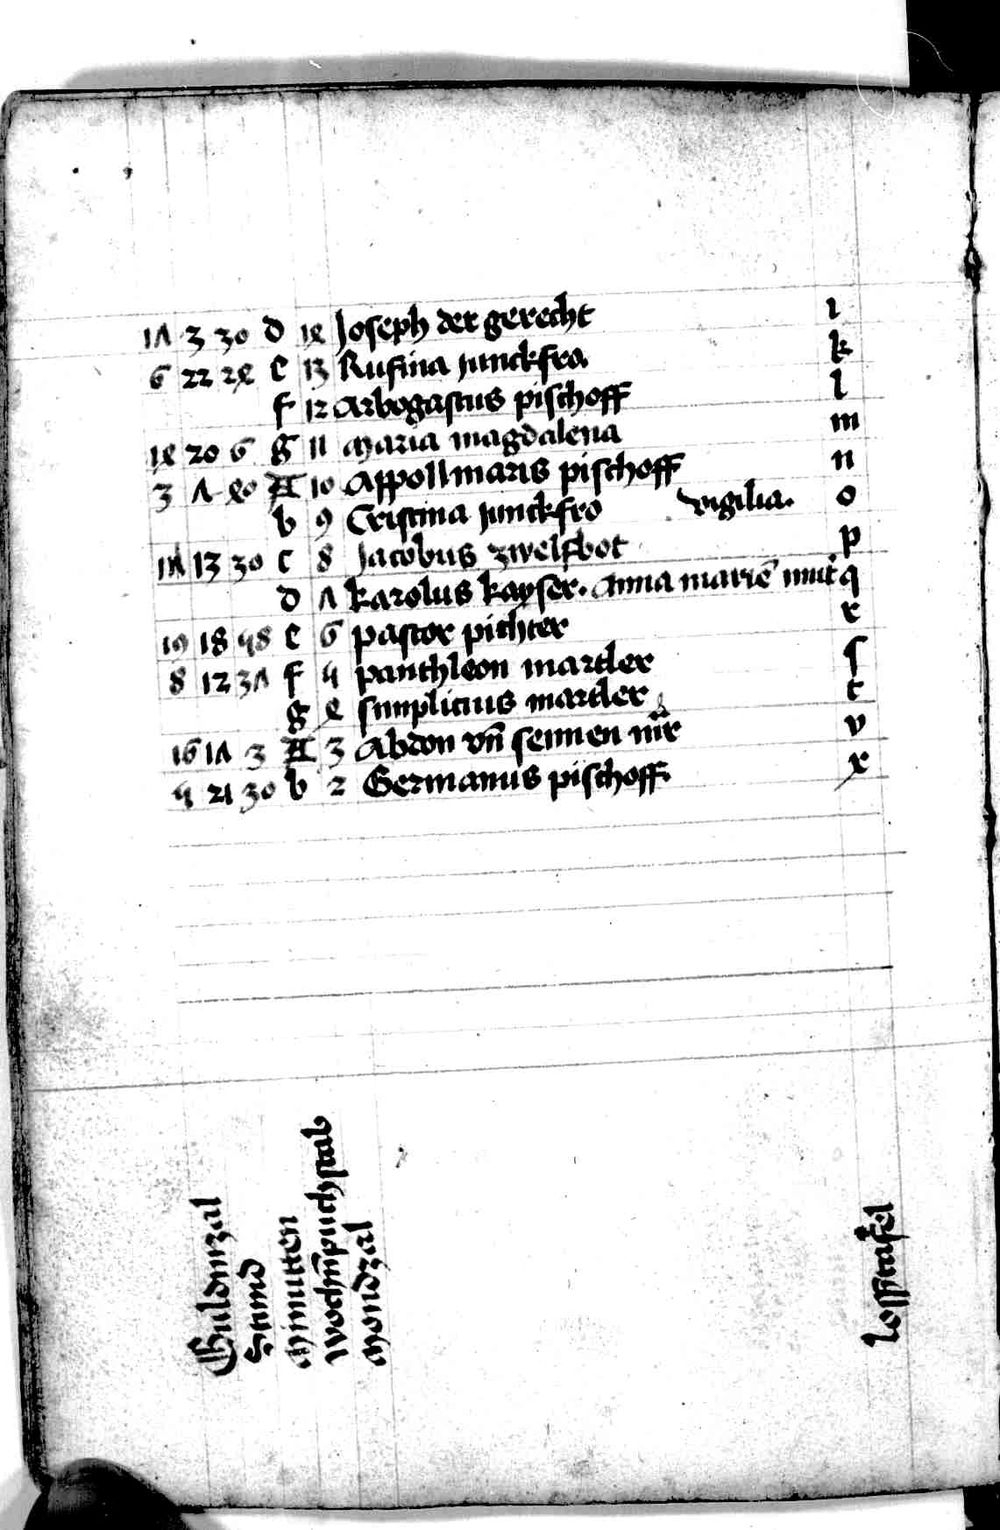 17 3 30 d 14 Joseph der gerecht i
6 22 24 e 13 Rufina junckfra k
f 12 Arbogastus pischoff l
14 20 6 g 11 Maria magdalena m
3 7 40 A 10 Appollinaris pischoff n
b 9 Cristina junckfro vigilia. o
11 13 30 c 8 Jacobus zwelfbot p
d 7 karolus kayser. Anna marie mut̉ q
19 18 58 e 6 pastor pichter r
8 12 37 f 5 panthleon martler ſ
g 4 simplicius martler t
16 17 3 A 3 Abdon vn̄ sennen mr̄ v
5 21 30 b 2 Germanus pischoff x
Guldinzal
Stund
Minutten
Wochn̄puchstab
Mondzal
Losstafel